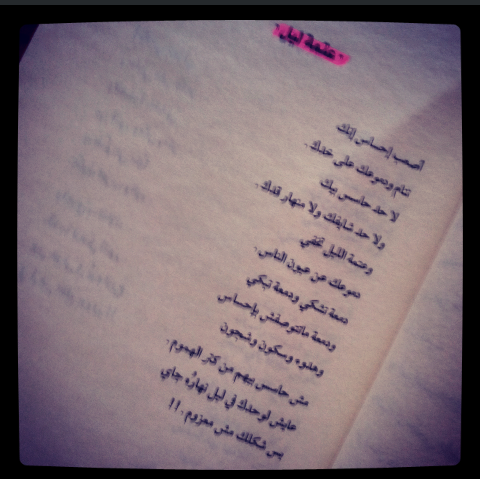 "عتمة ليل"
أصعب إحساس إنك
تنام ودموعك على خدك .
لا حد حاسس بيك
ولا حد شايفك ولا منهار قدك .
وعتمة الليل تخفي
دموعك عن عيون الناس .
دمعة تشكي ودمعة تبكي
ودمعة ماتتوصفش بإحساس
وهدوء وسكون وشجون
مش حاسس بيهم من كتر الهموم .
عايش لوحدك في ليل نهاره جاي
بس شكلك مش معزوم . !!